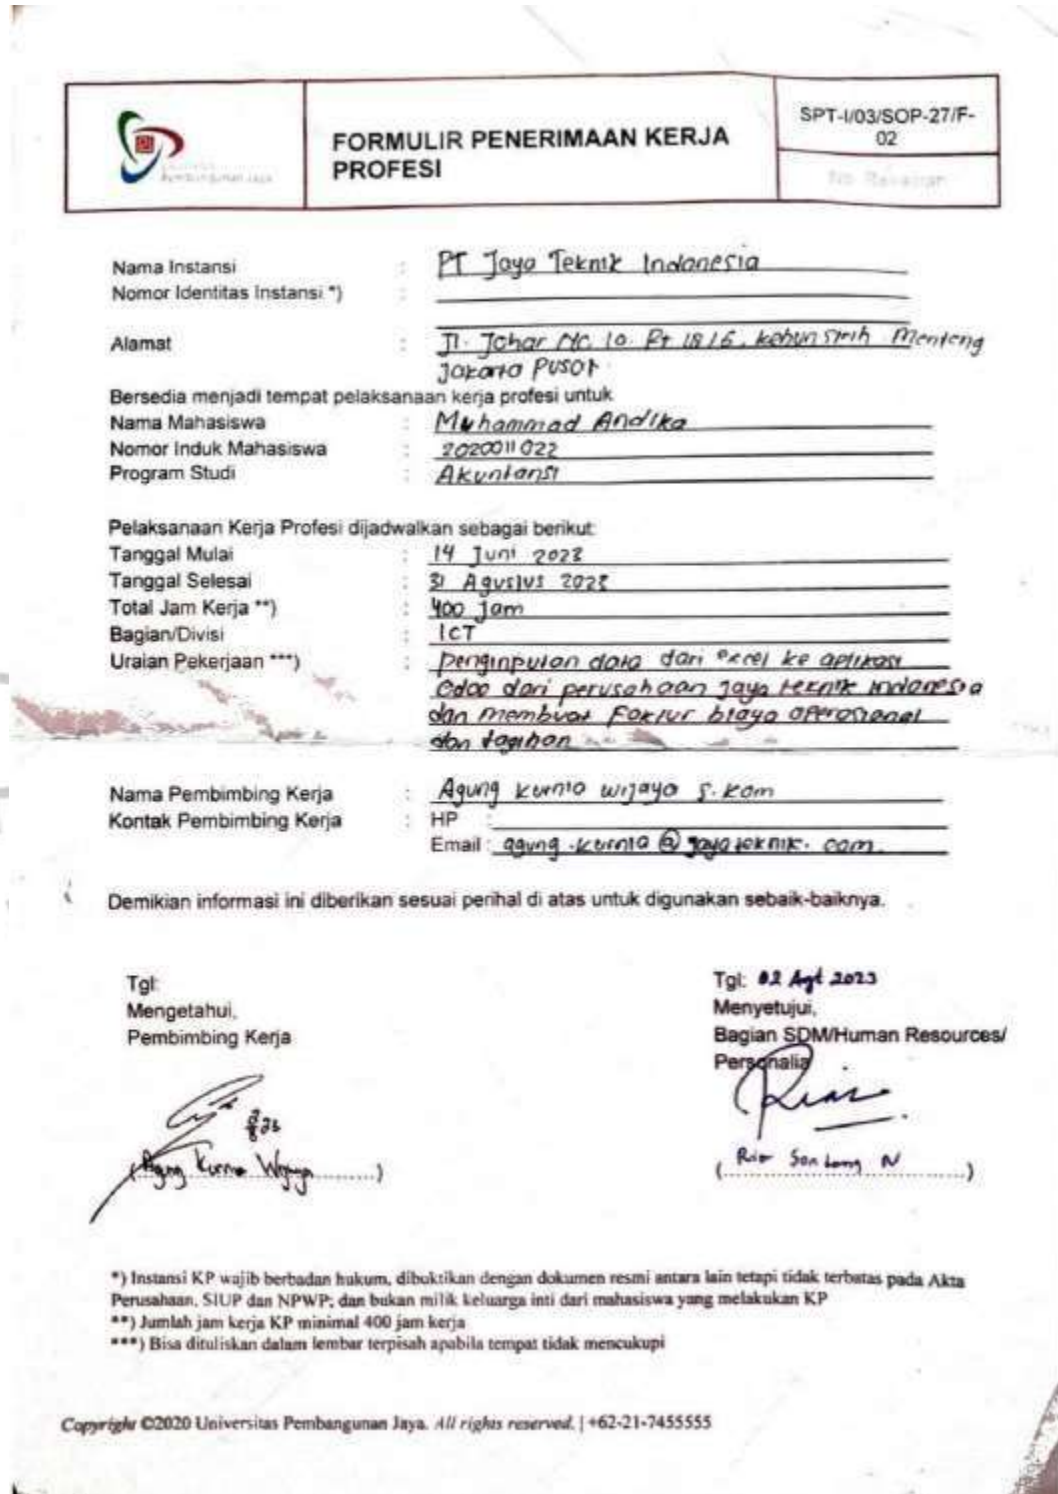 PEMBANGUNAN JAYA
FORMULIR PENERIMAAN KERJA
PROFESI
SPT-I/03/SOP-27/F-
02
No. Rekaman
Nama Instansi : PT Jaya Teknik Indonesia
Nomor Identitas Instansi *) :
Alamat : Jl. Johar No. 10. Rt 18/6, kebun sirih Menteng
Jakarta Pusat
Bersedia menjadi tempat pelaksanaan kerja profesi untuk
Nama Mahasiswa : Muhammad Andika
Nomor Induk Mahasiswa : 2020011022
Program Studi : Akuntansi
Pelaksanaan Kerja Profesi dijadwalkan sebagai berikut:
Tanggal Mulai : 14 Juni 2023
Tanggal Selesai : 31 Agustus 2023
Total Jam Kerja **) : 400 Jam
Bagian/Divisi : ICT
Uraian Pekerjaan ***) : Penginputan data dari excel ke aplikasi
Odoo dari perusahaan Jaya teknik indonesia
dan membuat Faktur biaya operasional
dan tagihan
Nama Pembimbing Kerja : Agung kurnia wijaya S.kom
Kontak Pembimbing Kerja : HP :
Email : agung.kurnia@jayateknik.com.
Demikian informasi ini diberikan sesuai perihal di atas untuk digunakan sebaik-baiknya.
Tgl:
Mengetahui,
Pembimbing Kerja
(Agung Kurnia Wijaya)
Tgl: 02 Agt 2023
Menyetujui,
Bagian SDM/Human Resources/
Personalia
( Rior N )
*) Instansi KP wajib berbadan hukum, dibuktikan dengan dokumen resmi antara lain tetapi tidak terbatas pada Akta
Perusahaan, SIUP dan NPWP; dan bukan milik keluarga inti dari mahasiswa yang melakukan KP
**) Jumlah jam kerja KP minimal 400 jam kerja
***) Bisa dituliskan dalam lembar terpisah apabila tempat tidak mencukupi
Copyright ©2020 Universitas Pembangunan Jaya. All rights reserved. | +62-21-7455555